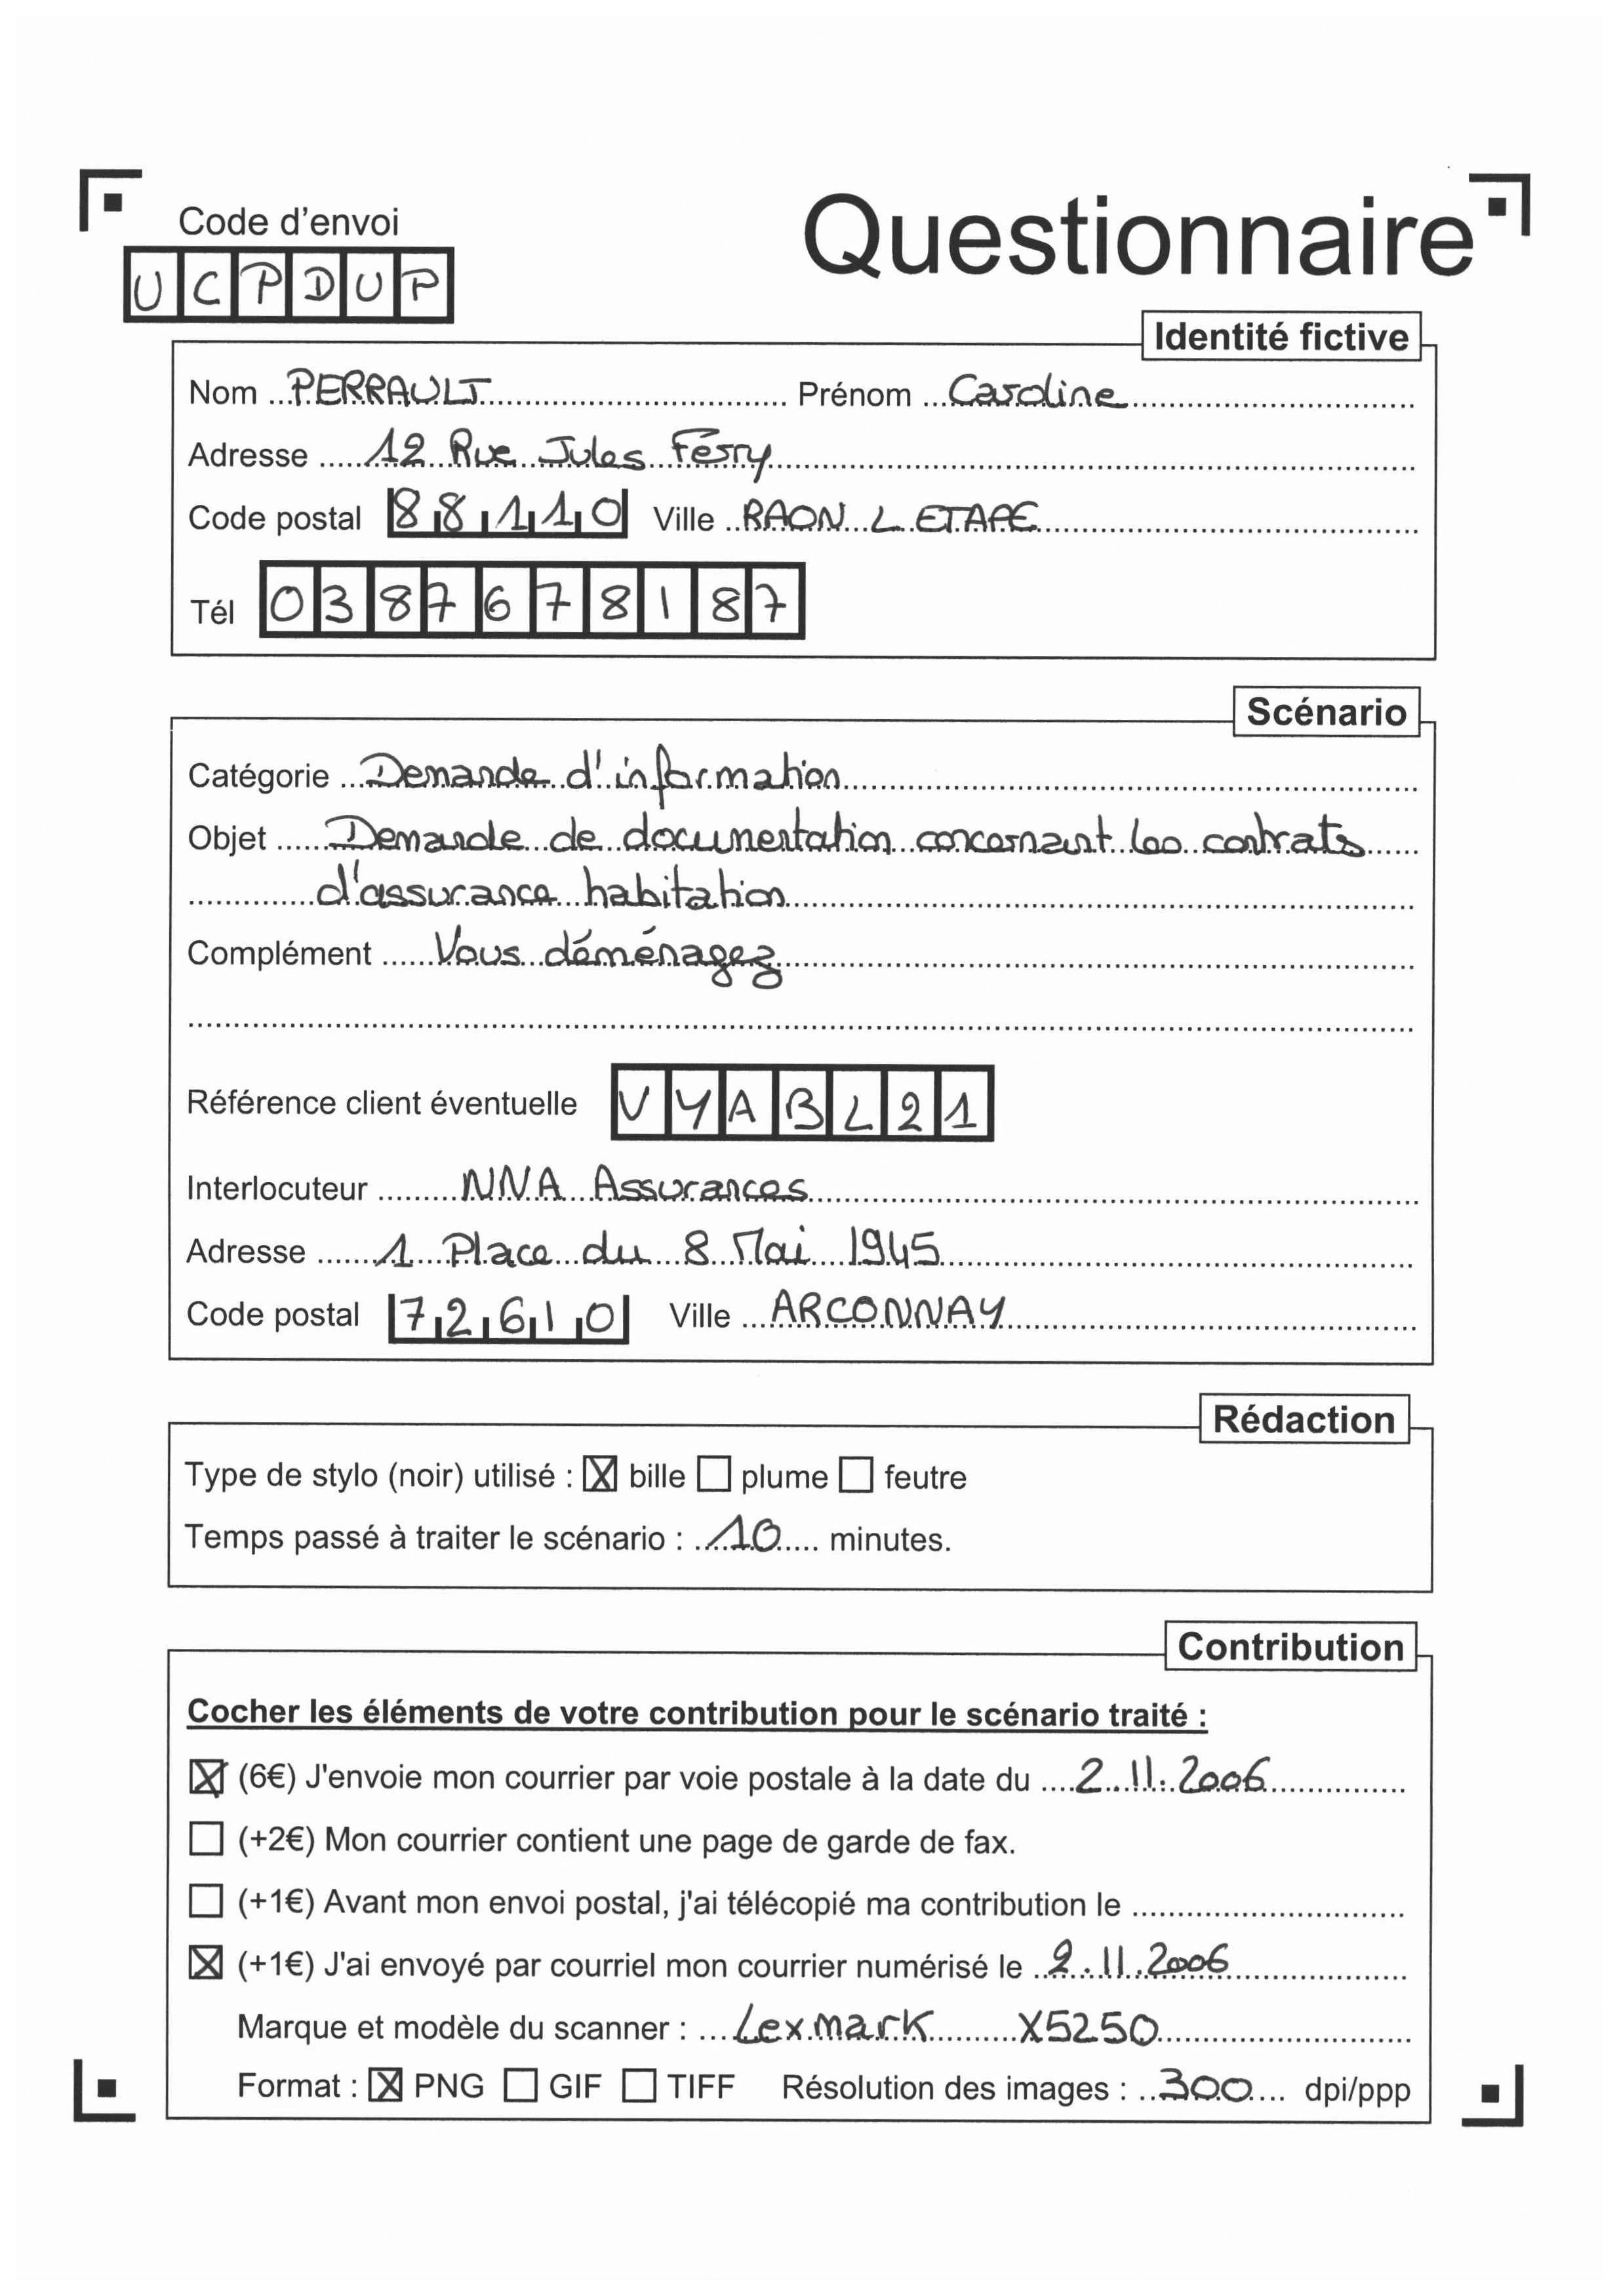 Questionnaire
Code d'envoi
UCPDUP
Identité fictive
Nom PERRAULT Prénom Caroline
Adresse 12 Rue Jules Ferry
Code postal 88110 Ville RAON L ETAPE
Tél 0387678187
Scénario
Catégorie Demande d'information
Objet Demande de documentation concernant les contrats
d'assurance habitation
Complément Vous déménagez
Référence client éventuelle VYABL21
Interlocuteur NNA Assurances
Adresse 1 Place du 8 Mai 1945
Code postal 72610 Ville ARCONNAY
Rédaction
Type de stylo (noir) utilisé : ☒ bille ☐ plume ☐ feutre
Temps passé à traiter le scénario : 10 minutes.
Contribution
Cocher les éléments de votre contribution pour le scénario traité :
☒ (6€) J'envoie mon courrier par voie postale à la date du 2.11.2006
☐ (+2€) Mon courrier contient une page de garde de fax.
☐ (+1€) Avant mon envoi postal, j'ai télécopié ma contribution le
☒ (+1€) J'ai envoyé par courriel mon courrier numérisé le 2.11.2006
Marque et modèle du scanner : Lexmark X5250
Format : ☒ PNG ☐ GIF ☐ TIFF Résolution des images : 300 dpi/ppp